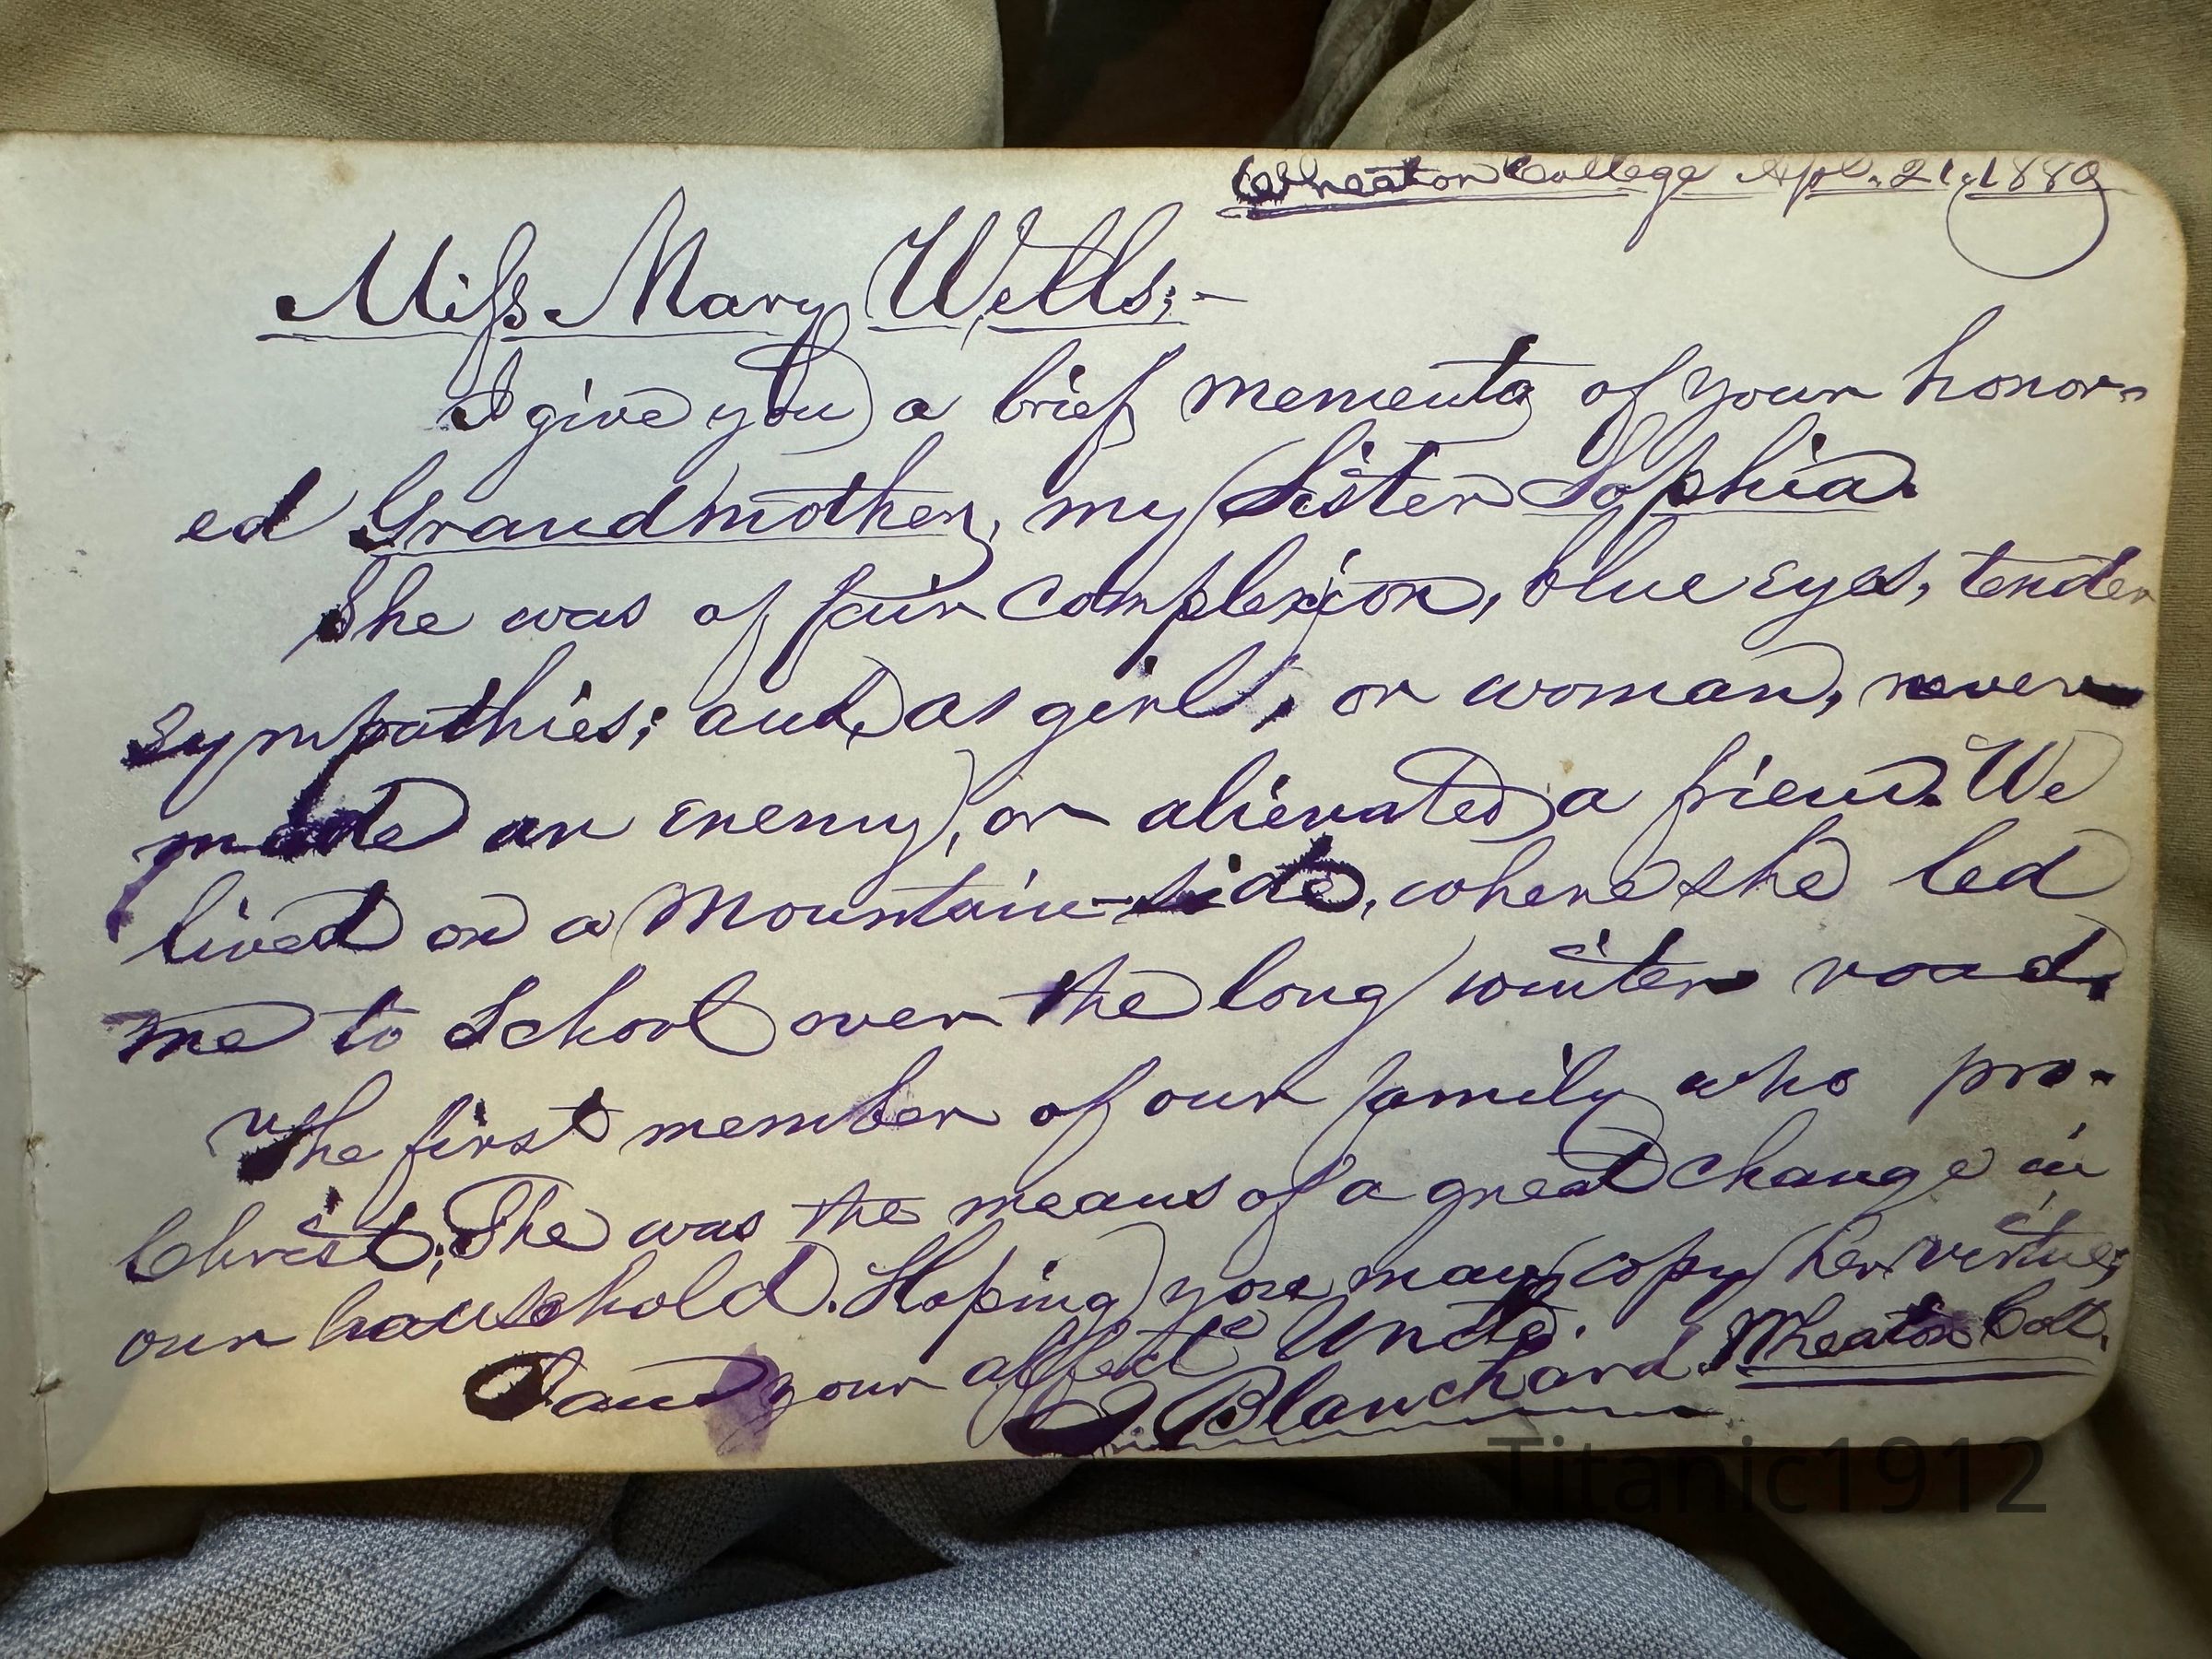 Wheaton College Apl. 21, 1880
Miss Mary Wells;-
I give you a brief memento of your honor-
ed Grandmother, my Sister Sophia.
She was of fair complexion, blue eyes, tender
sympathies; and, as girl, or woman, never
made an enemy, or alienated a friend. We
lived on a Mountain-side, where she led
me to School over the long winter road.
The first member of our family who pro-
Christ; She was the means of a great change in
our household. Hoping you may copy her virtues
I am your affect Uncle.
J. Blanchard. Wheaton Coll.
Titanic1912